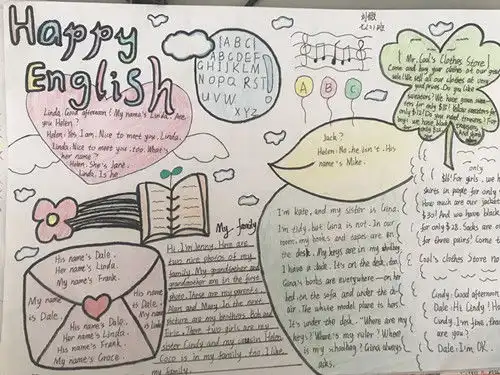 Happy
English
Linda: Good afternoon! My name's Linda. Are
you Helen?
Helen: Yes I am. Nice to meet you, Linda.
Linda: Nice to meet you, too. What's
her name?
Helen: She's Jane.
Linda: Is he
ABC
ABCDEF
GHIJKLM
NOPQ RS T
UVW
XYZ
A B C
Mr. Cool's Clothes Store!
Come and buy your clothes at our great
sale! We sell all our clothes at very
good prices. Do you like
sweaters? We have
for only
for only $12! Do you need trousers?
boys, we have black
for only $22.
only
For girls, we h
skirts in purple for only
How much are our jacket
$30! And we have black
for only $28. Socks are o
for three pairs! Come t
Cool's Clothes Store no
Jack?
Helen: No, he isn't. His
name's Mike.
I'm Kate, and my sister is Gina.
I'm tidy, but Gina is not. In our
room, my books and tapes are in
the desk. My keys are in my schoolbag.
I have a clock. It's on the desk.
Gina's books are everywhere — on her
bed, on the sofa and under the
The white model plane is hers.
It's under the desk. "Where are my
keys? Where's my ruler? Where
is my schoolbag?" Gina always
asks.
My family
Hi, I'm Jenny. Here are
two nice photos of my
family. My grandfather and
grandmother are in the first
photo. These are my parents,
Alan and Mary. In the next
picture are my brothers, Bob and
Eric. These two girls are my
sister Cindy and my cousin Helen.
Coco is in my family, too. I like
my family.
His name's Dale.
Her name's Linda.
My name's Frank.
My name
is Dale.
His name's Dale.
My name's Linda
His name's Dale.
Her name's Linda.
His name's Frank.
My name's Grace.
Cindy: Good afternoon,
Dale: Hi, Cindy! Ho
Cindy: I'm fine, than
are you?
Dale: I'm OK.